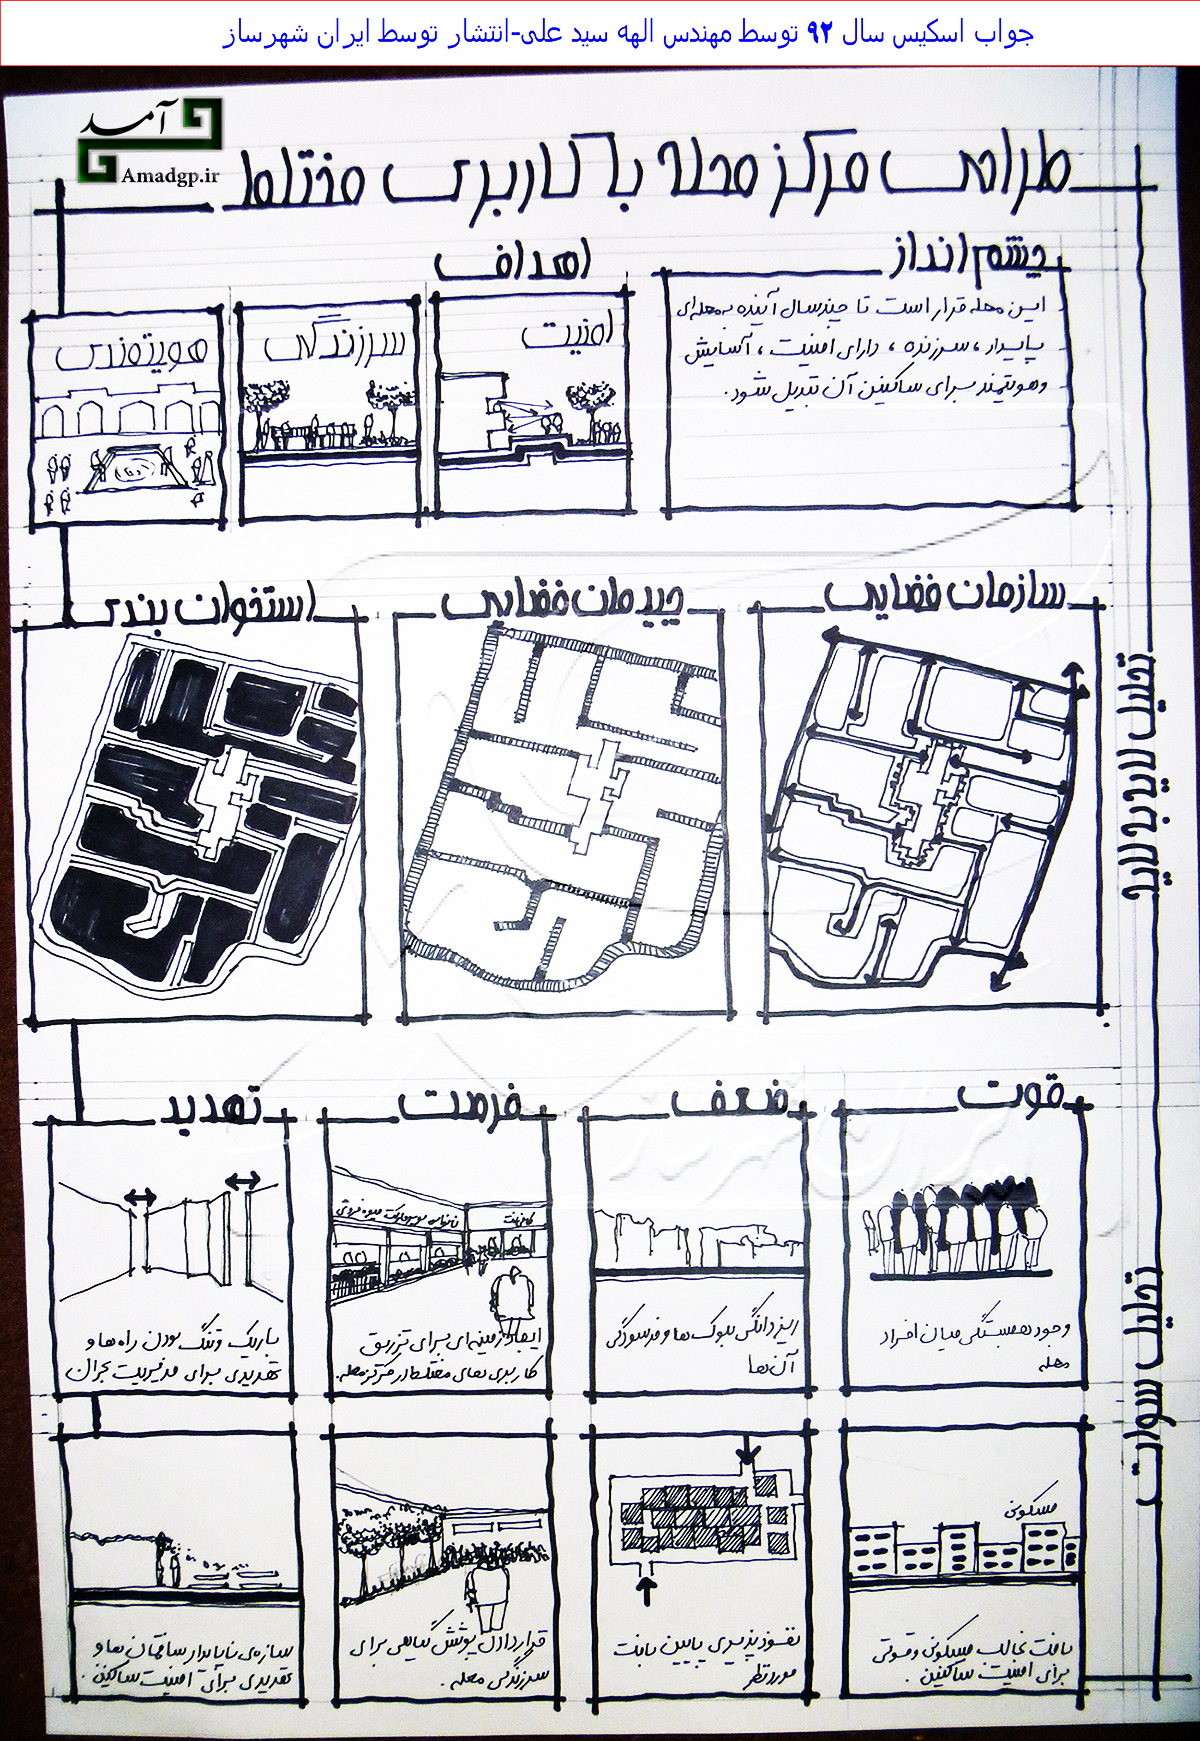 جواب اسکیس سال ۹۲ توسط مهندس الهه سید علی-انتشار توسط ایران شهرساز
آمد
Amadgp.ir
طراحی مرکز محله با کاربری مختلط
چشم انداز
این محله قرار است تا چند سال آینده به محله‌ای
پایدار، سرزنده، دارای امنیت، آسایش
و هویتمند برای ساکنین آن تبدیل شود.
اهداف
امنیت
سرزندگی
هویتمندی
تحلیل لایه به لایه
سازمان فضایی
چیدمان فضایی
استخوان بندی
تحلیل سوات
قوت
وجود همبستگی میان افراد
محله
ضعف
ریزدانگی بلوک ها و فرسودگی
آن‌ها
فرصت
کافی‌نت
نانوایی سوپرمارکت میوه فروشی
ایجاد زمینه‌ای برای تزریق
کاربری های مختلط در مرکز محله.
تهدید
باریک و تنگ بودن راه ها و
تهدیدی برای مدیریت بحران
مسکونی
بافت غالب مسکونی و قوتی
برای امنیت ساکنین.
نفوذپذیری پایین بافت
مورد نظر
قرار دادن پوشش گیاهی برای
سرزندگی محله.
سازه‌ی ناپایدار ساختمان ها و
تهدیدی برای امنیت ساکنین.
ایران شهرساز